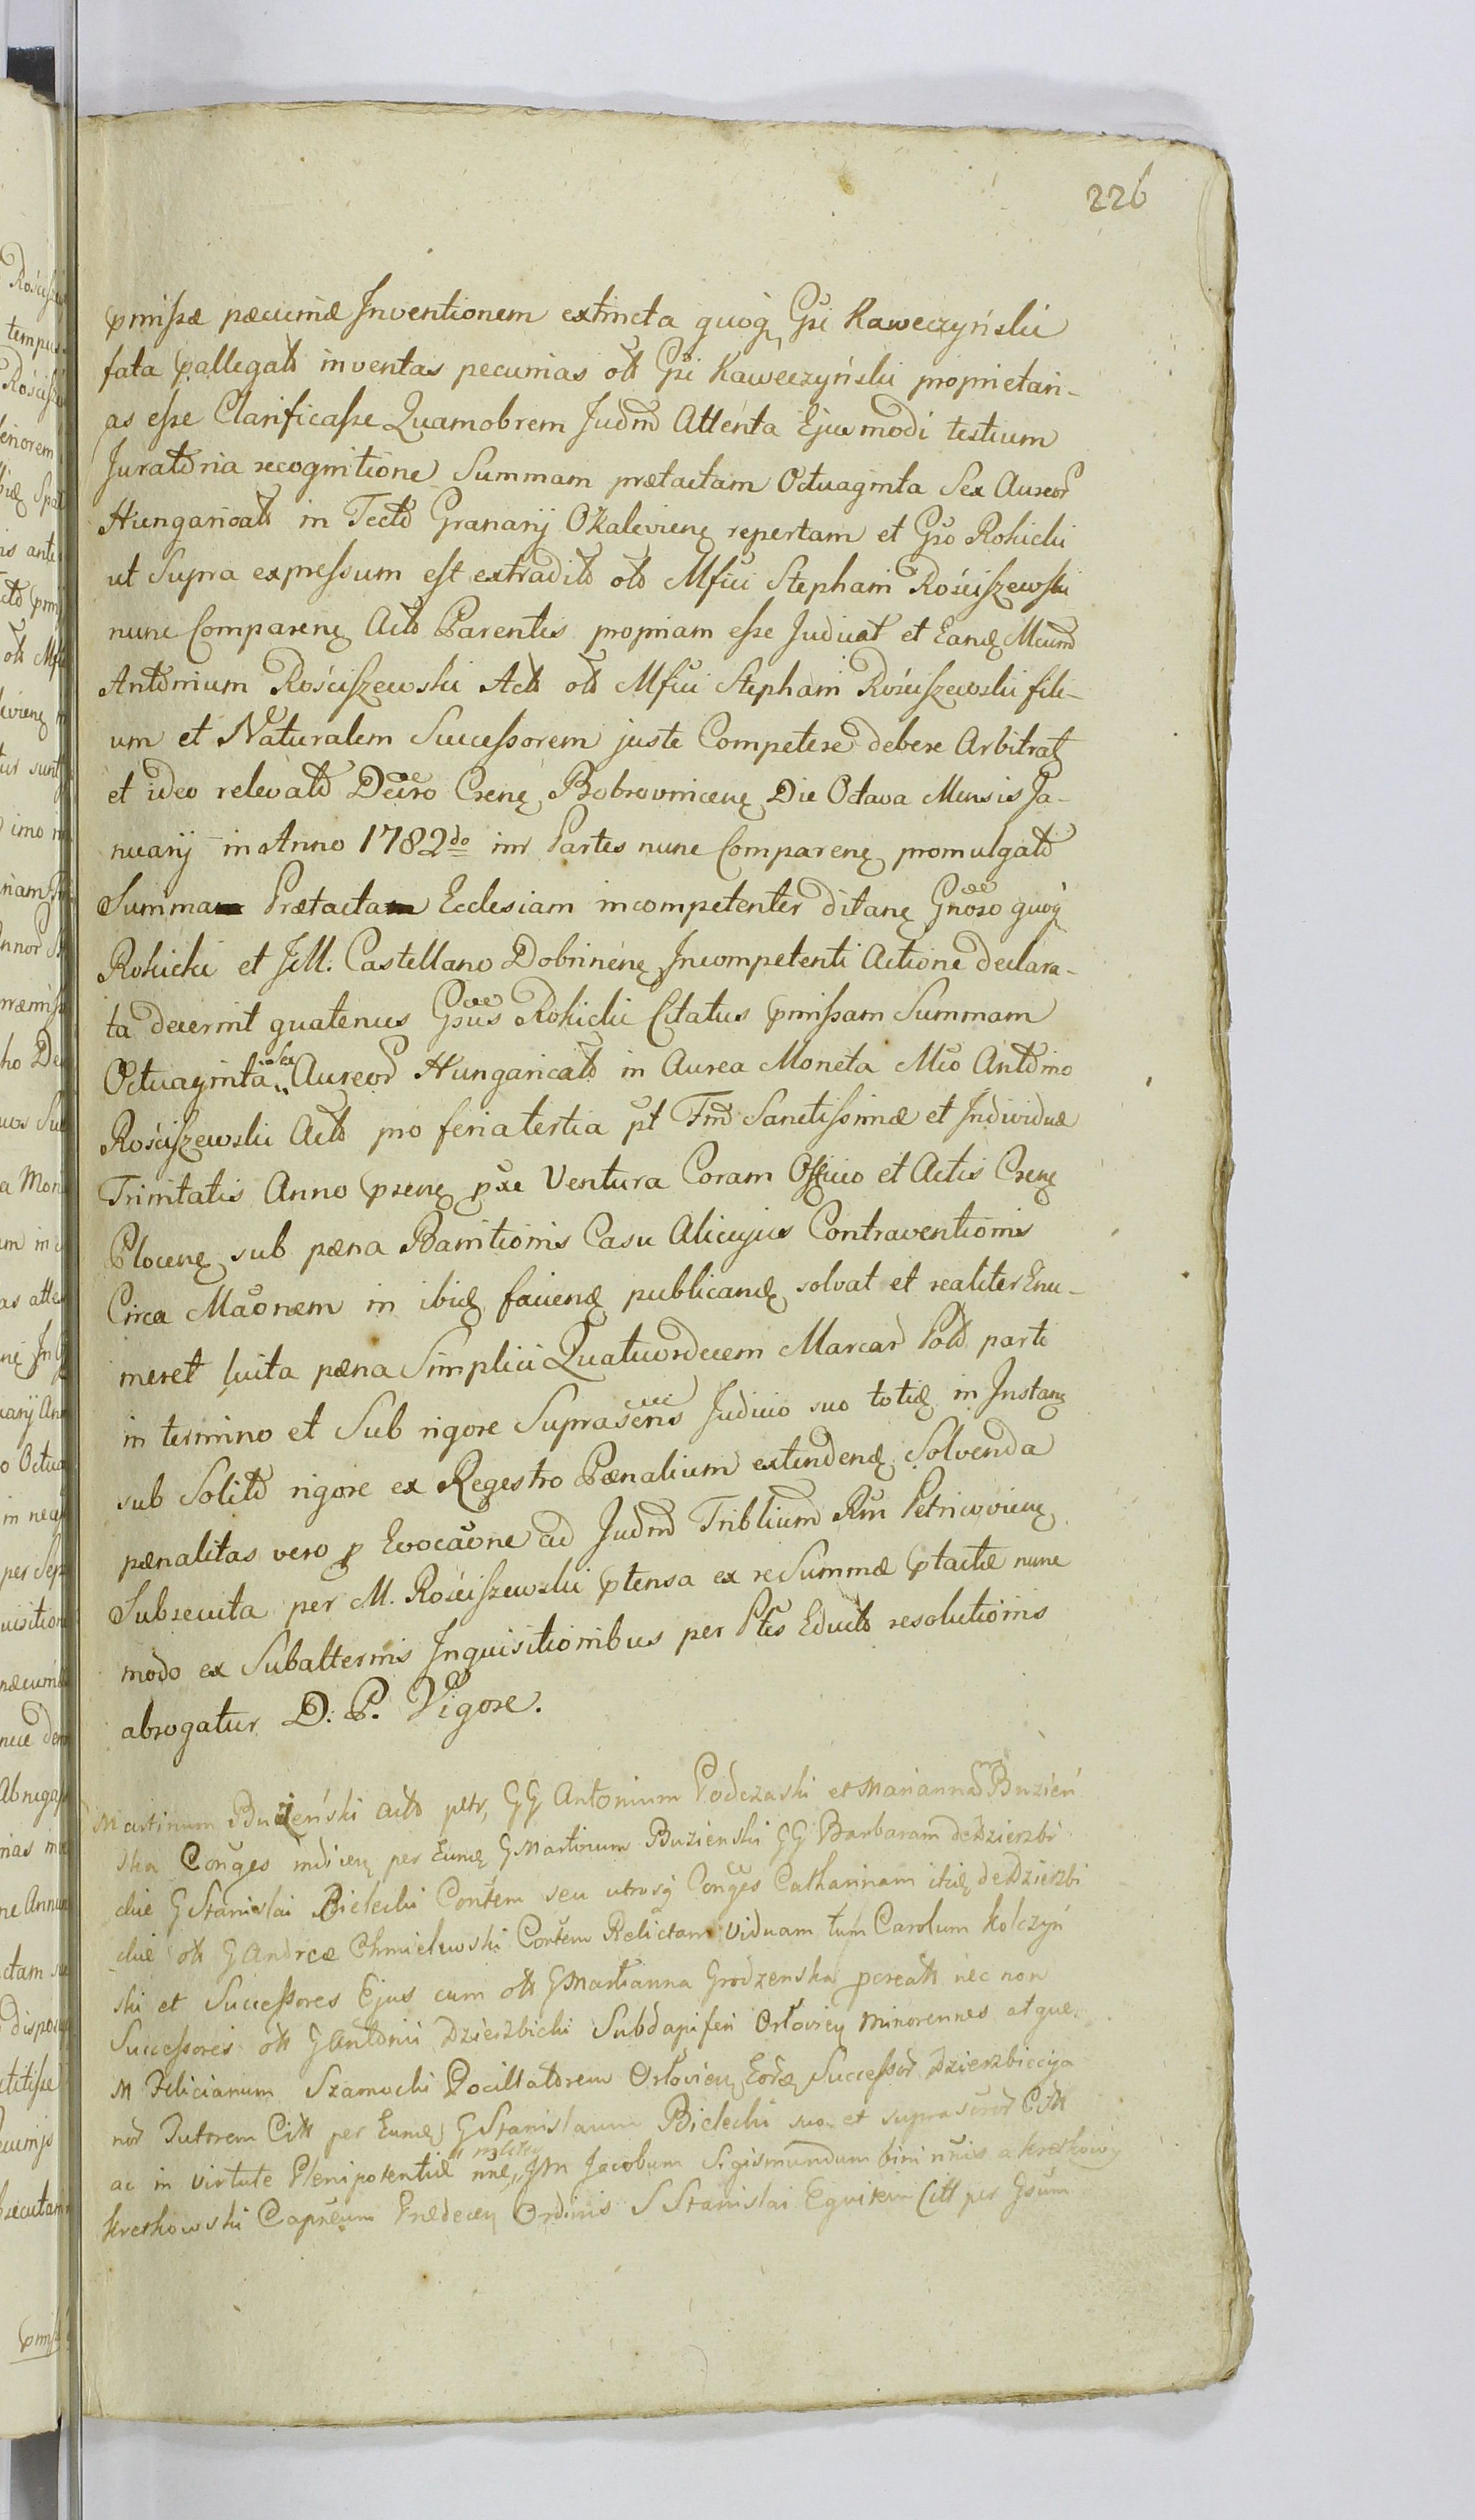 226
pmißæ pæcuniæ Inventionem extincta quoq Gsi Kaweczyński
fata pallegatt inventas pecunias ott Gsi Kaweczyński proprietari-
as eße Clarificaße Quamobrem Judm Attenta Ejusmodi testium
Juratoria recognitione Summam prætactam Octuaginta Sex Aureor
Hungaricatt in Tecto Granarij Okalevienę repertam et Gso Rokicki
ut Supra expreßum est extradito ott Mfici Stephani Rościszewski
nunc Comparenę Actt Parentis propriam eße Judicat et Eandę Mcum
Antonium Rościszewski Actt ott Mfici Stephani Rościszewski fili-
um et Naturalem Succeßorem juste Competere debere Arbitratę
et ideo relevatto Decro Crenę Bobrovnicenę Die Octava Mensis Ja-
nuarij in Anno 1782do inr Partes nunc Comparenę promulgatto
Summam Prætactam Ecclesiam incompetenter ditanę Gnoso quoq
Rokicki et Jll. Castellano Dobrinenę Incompetenti Actione declara-
ta decernit quatenus Gsus Rokicki Citatus pmißam Summam
Octuaginta sex Aureor Hungaricatt in Aurea Moneta Mco Antonio
Rościszewski Actt pro feria tertia pt Fm Sanctißimæ et Individuæ
Trinitatis Anno prenę pxe Ventura Coram Officio et Actis Crenę
Plocenę sub pæna Banitionis Casu Alicujus Contraventionis
Circa Maonem in ibidę facienę publicandę solvat et realiter Enu-
meret luita pæna Simplici Quatuordecem Marcar Poll parti
in termino et Sub rigore Suprascris Judicio suo totidę in Instanę
sub Solito rigore ex Regestro Pænalium extendenę Solvenda
pænalitas vero p Evocaone ad Judm Triblium Rni Petricovienę
Subsecuta per M. Rościszewski ptensa ex re Summæ ptactæ nunc
modo ex Subalternis Inquisitionibus per Ptes Educto resolutionis
abrogatur D. P. Vigore.
Martinum Buzieński actt petr, GG Antonium Podczaski et Mariannam Buzień
ska Conges per Eundę G Martinum Buzienski GG Barbaram de Dzierzbi
ckie G Stanislai Bielecki Contem seu utrosq Conges Catharinam itidę de Dzierzbi
ckie ott G Andreæ Chmielewski Contem Relictam Viduam tum Carolum Kolczyń
ski et Succeßores Ejus cum ott G Marianna Grodzenska pcreatt nec non
Succeßores ott G Antonii Dzierzbicki Subdapiferi Orlovieę Minorennes atque
M Felicianum Szamocki Pocillatorem Orlovieę Eordę Succeßor Dzierzbiccia
nor Tutorem Citt per Eundę G Stanislaum Bielecki suo et suprascror Citt
ac in virtute Plenipotentiæ JM Jacobum Sigismundum bini nnis a Kretkowy
Kretkowski Capneum Prædecen Ordinis S Stanislai Equitem Citt per Gsum